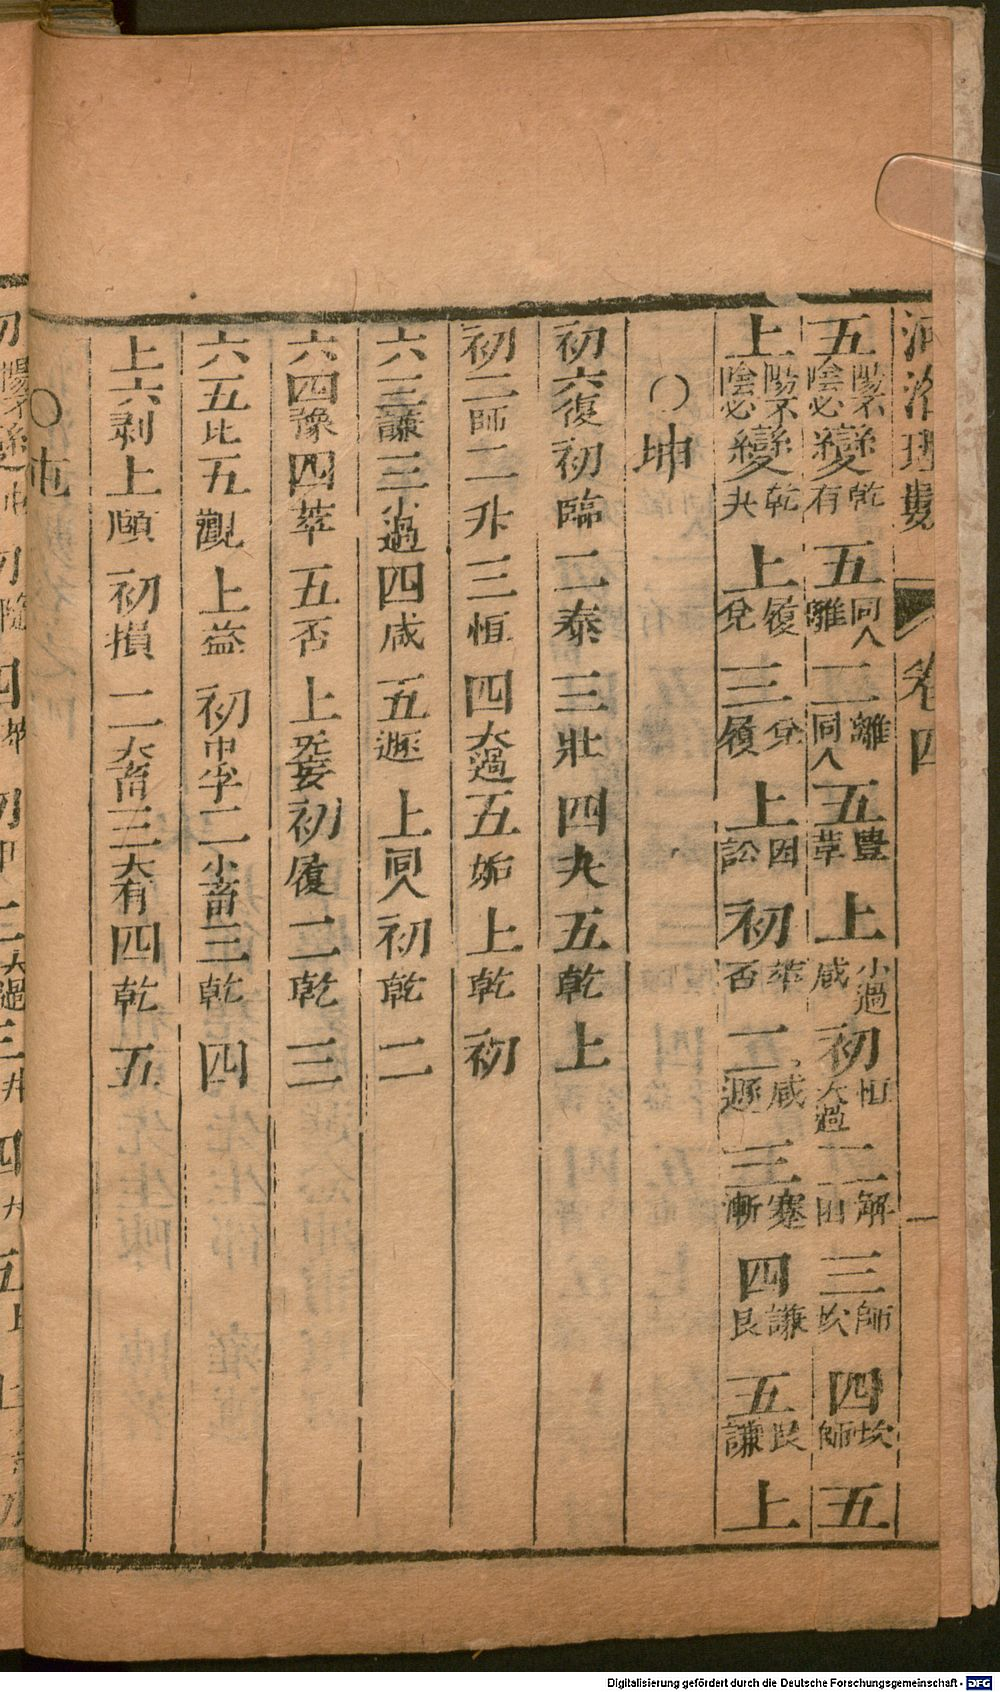 河洛理數 卷四 一
五陽不陰必變乾有五同人離二離同人五豐革上小過咸初恒大過二解困三師坎四坎師五
上陽不陰必變乾夬上履兌三兌履上困訟初萃否二咸遯三蹇漸四謙艮五艮謙上
○坤
初六復初臨二泰三壯四夬五乾上
初二師二升三恒四大過五姤上乾初
六三謙三小過四咸五遯上同人初乾二
六四豫四萃五否上无妄初履二乾三
六五比五觀上益初中孚二小畜三乾四
上六剥上頤初損二大畜三大有四乾五
○屯
Digitalisierung gefördert durch die Deutsche Forschungsgemeinschaft - DFG